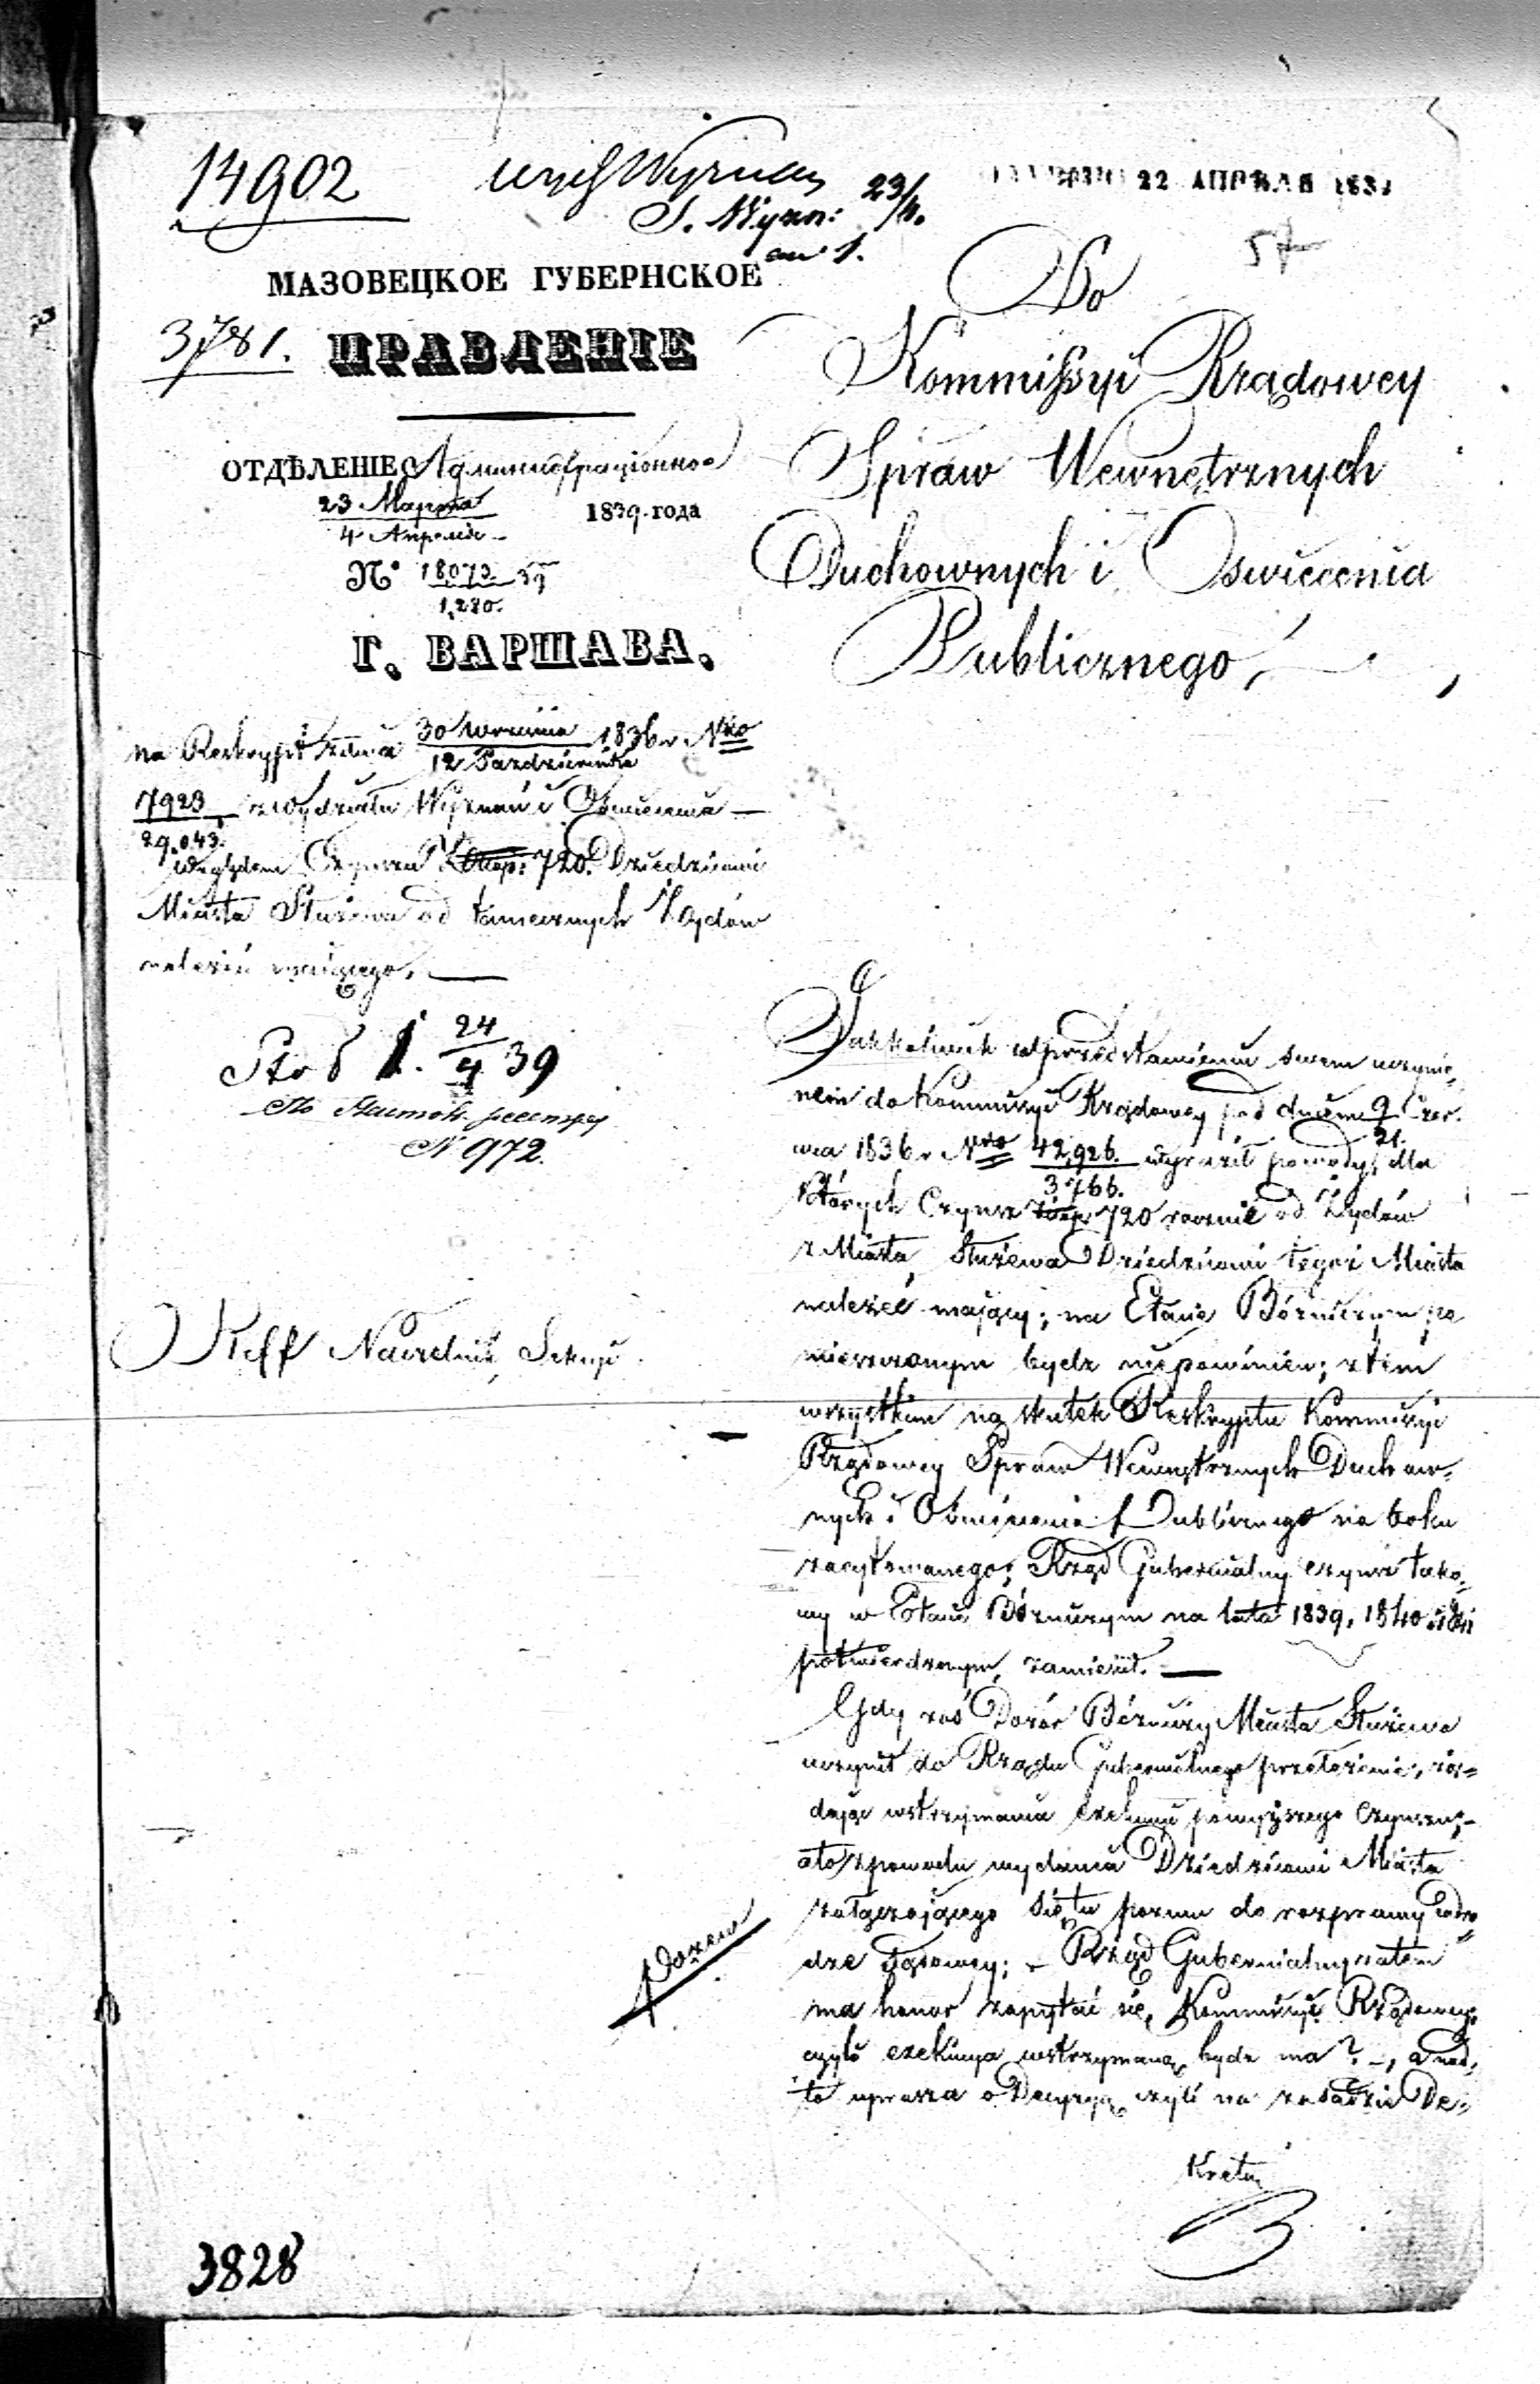 14902
Wyzn:
23/4.
22 АПРѢЛЯ 183
57
МАЗОВЕЦКОЕ ГУБЕРНСКОЕ
3781.
ПРАВЛЕНІЕ
ОТДѢЛЕНІЕ Администраціонное
23 Марта
4 Апреля
1839 года
N° 18073 39
1,280.
Г. ВАРШАВА.
Do
Kommissyi Rządowey
Spraw Wewnętrznych
Duchownych i Oswiecenia
Publicznego,
na Reskrypt z dnia 30 Wrzesnia 1836 r. Nro
12 Pazdziernika
7923 z Wydziału Wyznań i Oswiecenia —
29,043.
względem Czynszu Złtop: 720. Dziedzicowi
Miasta Służewa od tamecznych Żydów
należeć mającego. —
24
4 39
N 972.
Reff Naczelnik Sekcyi
Jakkolwiek w przedstawieniu swem uczynio=
nem do Kommissyi Rządowey pod dniem 9 Czer=
21.
wca 1836 r. Nro 42,926. wyraził powody, dla
3766.
których Czynsz Złtop 720 rocznie od Żydów
z Miasta Służewa Dziedzicowi tegoż Miasta
należeć mający; na Etacie Bóżniczym po
mieszczonym bydz niepowinien; z tem
wszystkim na skutek Reskryptu Kommissyi
Rządowey Spraw Wewnętrznych Duchow=
nych i Oswiecenia Publicznego na boku
zacytowanego; Rząd Gubernialny czynsz tako=
wy w Etacie Bóżniczym na lata 1839, 1840 i 1841
potwierdzonym, zamieścił. —
Gdy zaś Dozór Bóżniczy Miasta Służewa
uczynił do Rządu Gubernialnego przełożenie, żą=
dając wstrzymania exekucyi powyższego Czynszu; —
a to z powodu wydania Dziedzicowi Miasta
załączającego się tu pozwu do rozprawy w dro=
dze Sądowey; — Rząd Gubernialny zatem
ma honor zapytać się, Kommissyi Rządowey,
czyli exekucya wstrzymaną bydz ma? —, a nad=
to uprasza o Decyzyą, czyli na zasadzie De=
kretu
Pozew
3828